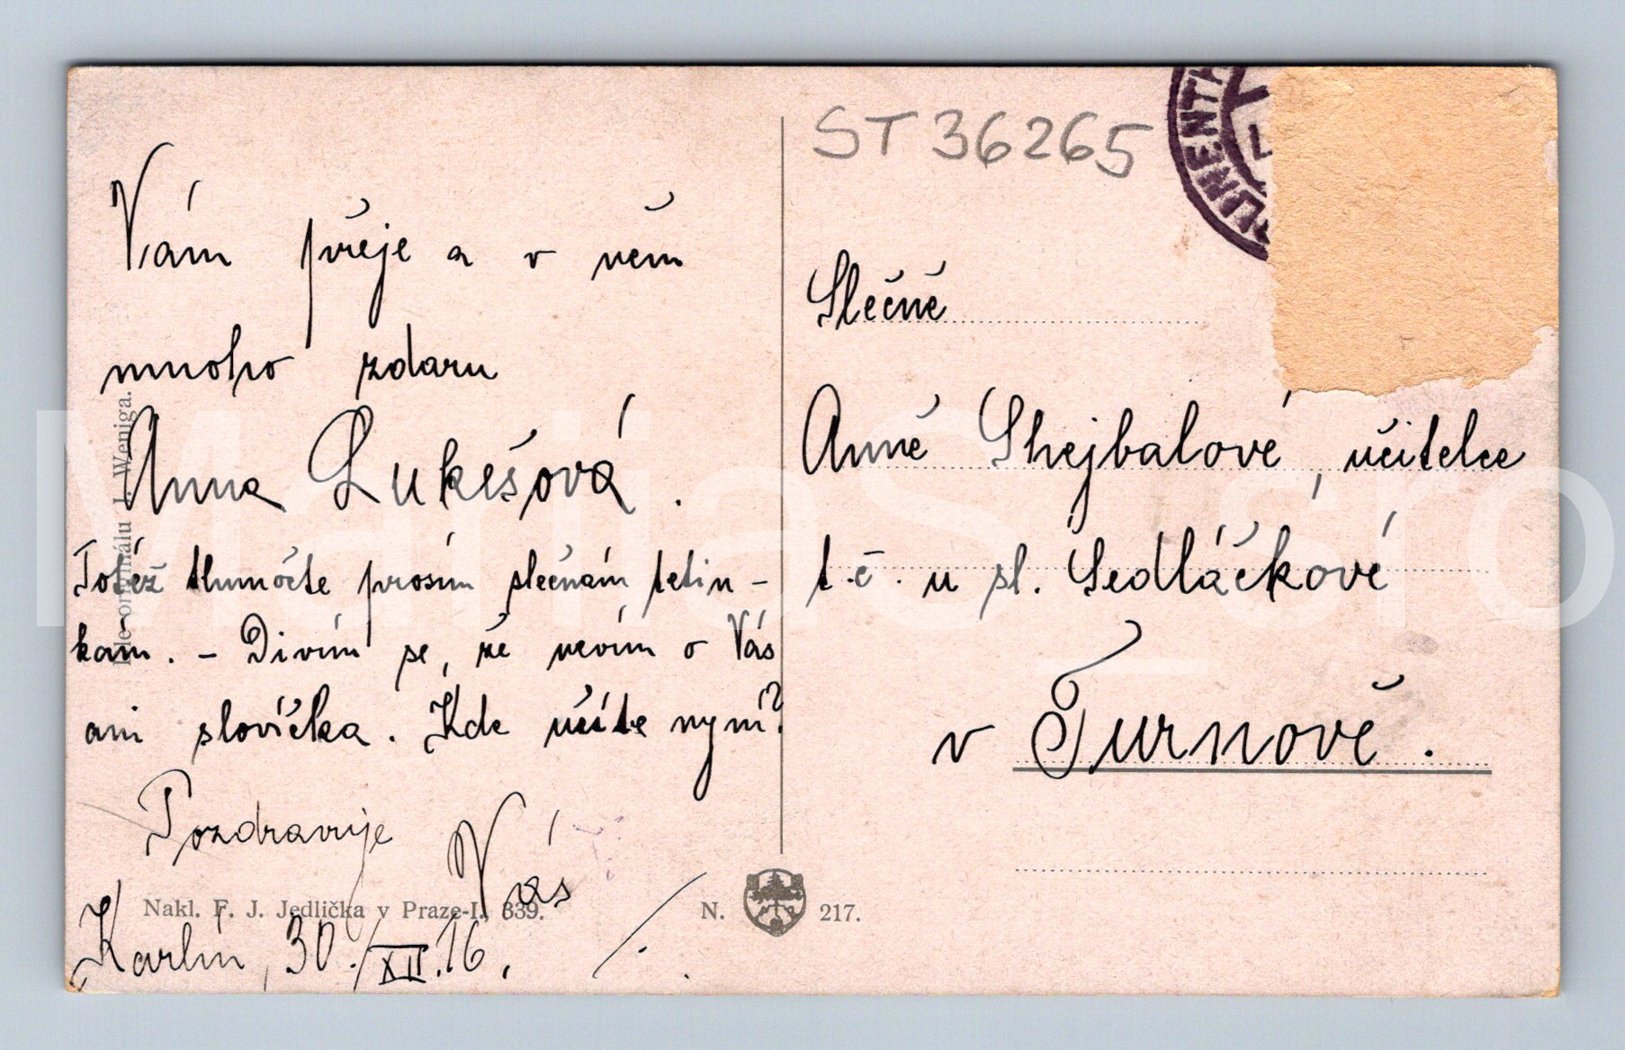 Vám přeje a v něm
mnoho zdaru
Anna Lukešová.
Totéž tlumočte prosím slečnám tetin-
kám. - Divím se, že nevím o Vás
ani slovíčka. Kde učíte nyní?
Pozdravuje Vás
Karlín, 30./XII.16.
Dle originálu J. Weniga.
Nakl. F. J. Jedlička v Praze-I., 339.
N. 217.
ST 36265
Slečně
Anně Shejbalové, učitelce
t. č. u sl. Sedláčkové
v Turnově.